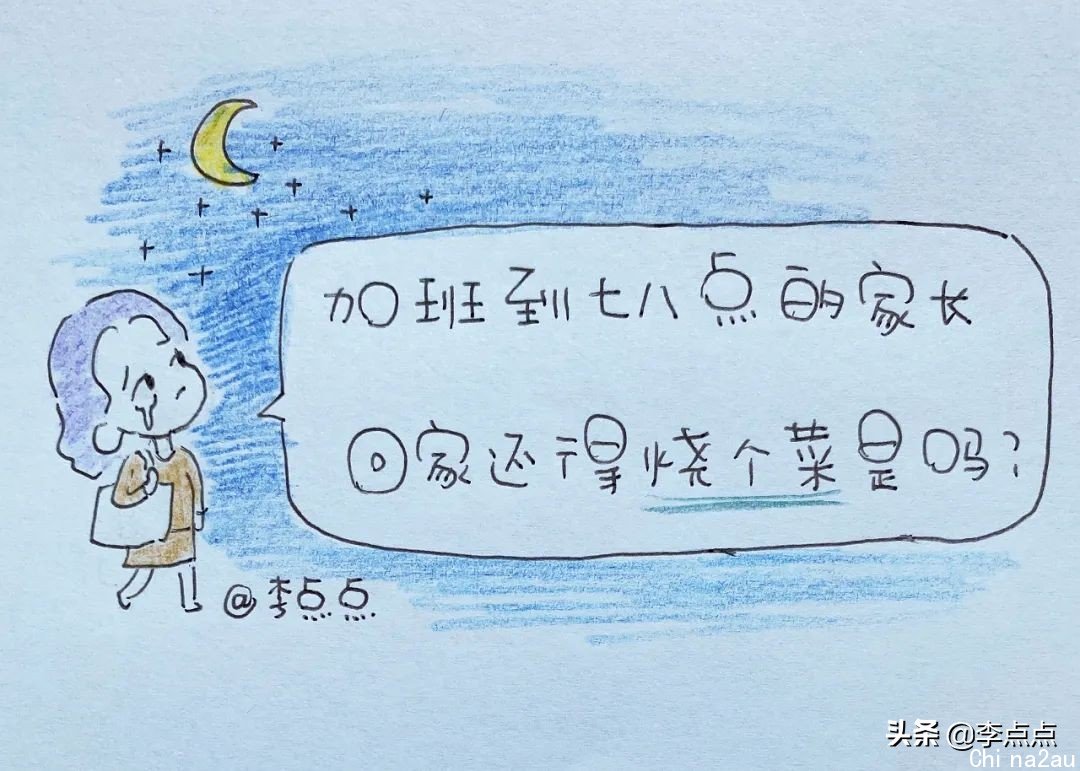 加班到七八点的家长
回家还得烧个菜是吗?
@李点点
头条 @李点点
Chi na2au